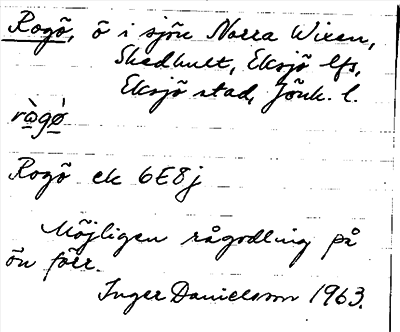 Rogö, ö i sjön Norra Wixen,
Skedhult, Eksjö lfs,
Eksjö stad, Jönk. l.
rògö̀
Rogö ek 6E8j
Möjligen rågodling på
ön förr.
Inger Danielsson 1963.